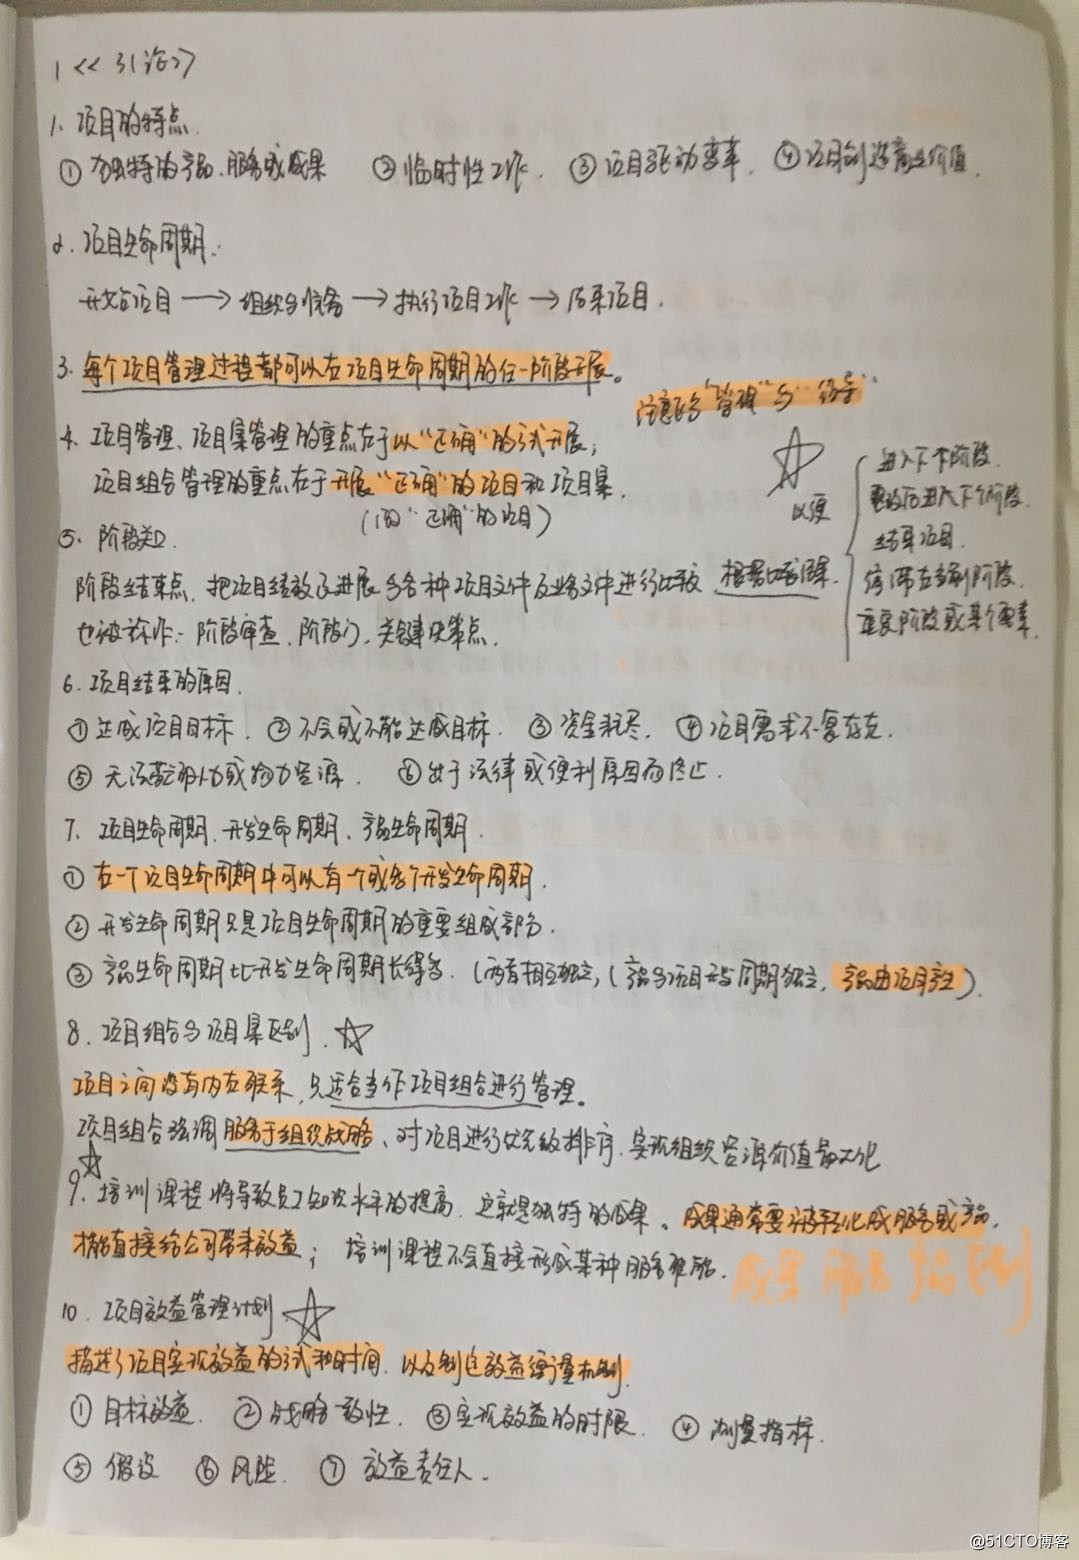 1 <<引论>>
1. 项目的特点.
① 独特的产品、服务或成果 ② 临时性工作. ③ 项目驱动变革. ④ 项目创造商业价值.
2. 项目生命周期:
开始项目 → 组织与准备 → 执行项目工作 → 结束项目.
3. 每个项目管理过程都可以在项目生命周期的任一阶段开展。
注意区分"管理"与"领导".
4. 项目管理、项目集管理的重点在于以"正确"的方式开展;
项目组合管理的重点在于开展"正确"的项目和项目集.
("正确"的项目)
5. 阶段关口.
阶段结束点, 把项目绩效及进展与各种项目文件及业务文件进行比较 根据比较结果.
☆ 以便
进入下个阶段.
整改后进入下个阶段.
结束项目.
停滞在当前阶段.
重复阶段或某个要素.
也被称作:阶段审查、阶段门、关键决策点.
6. 项目结束的原因.
① 达成项目目标. ② 不会或不能达成目标. ③ 资金耗尽. ④ 项目需求不复存在.
⑤ 无法获得人力或物力资源. ⑥ 出于法律或便利原因而终止.
7. 项目生命周期、开发生命周期、产品生命周期.
① 在一个项目生命周期中可以有一个或多个开发生命周期.
② 开发生命周期只是项目生命周期的重要组成部分.
③ 产品生命周期比开发生命周期长得多. (两者相互独立, (产品与项目开发周期独立, 产品由项目产生).
8. 项目组合与项目集区别. ☆
项目之间没有内在联系, 只适合当作项目组合进行管理。
项目组合强调服务于组织战略、对项目进行优先级排序, 实现组织资源价值最大化
☆
9. 培训课程将导致员工知识水平的提高, 这就是独特的成果。成果通常要被转化成服务或产品,
才能直接给公司带来效益; 培训课程不会直接形成某种服务职能.
成果 服务 产品区别
10. 项目效益管理计划 ☆
描述了项目实现效益的方式和时间, 以及制定效益衡量机制.
① 目标效益. ② 战略一致性. ③ 实现效益的时限. ④ 测量指标.
⑤ 假设 ⑥ 风险. ⑦ 效益责任人.
@51CTO博客